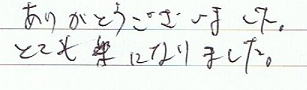 ありがとうございました。
とても楽になりました。